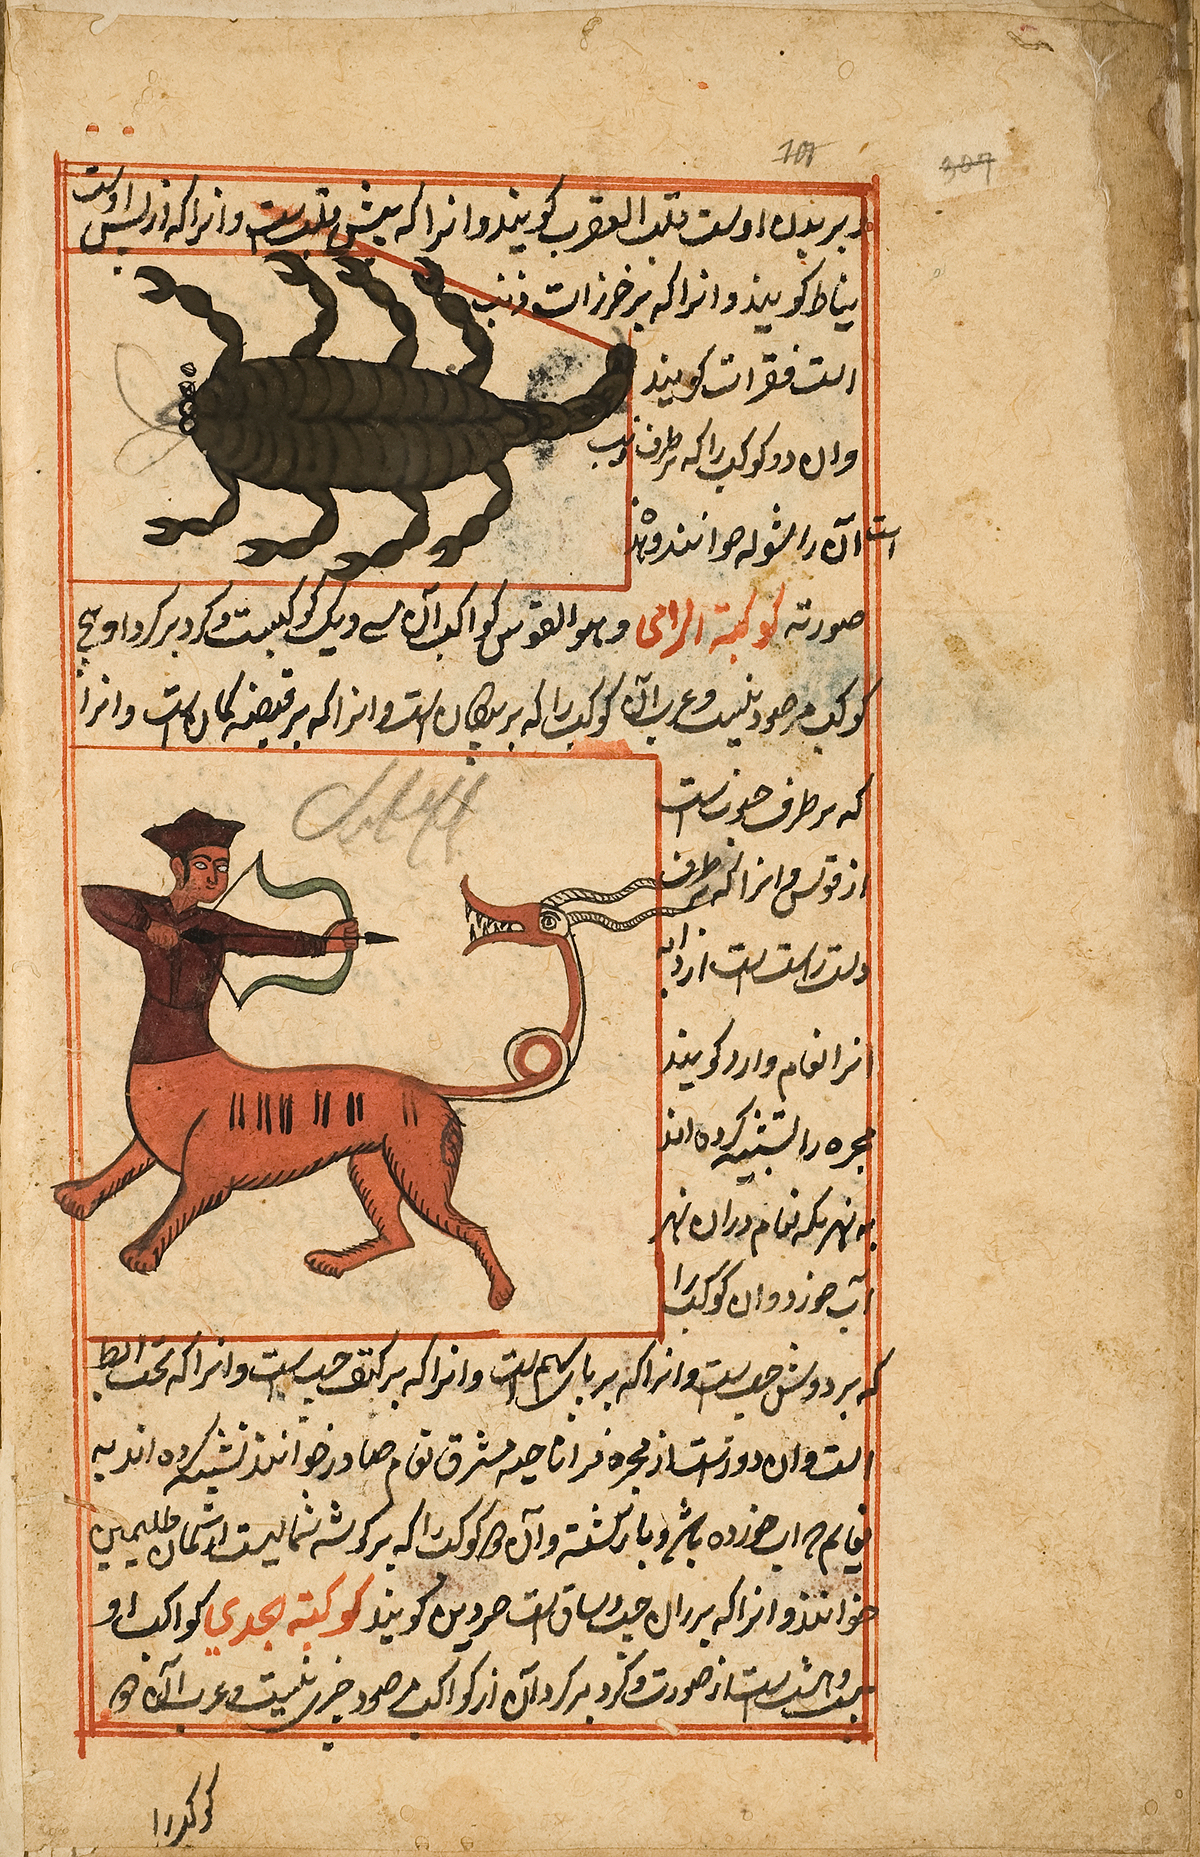 و بر بدن اوست قلب العقرب کویند و انرا که پیش قلب است و انرا که از پس اوست
نیاط کویند و انرا که بر خرزات ذنب
است فقرات کویند
وان دو کوکب را که بر طرف ذنب
است آن را شوله خوانند و هذه
صورته کوکبة الرامی و هو القوس کواکب آن سی و یک کوکبست و کرد بر کرد او هیچ
کوکب مرصود نیست و عرب آن کوکب را که بر پیکان است و انرا که بر قبضه کمان است و انرا
که بر طرف جنوب است
از قوس و انرا که بر طرف
دست راست است از دابه
انرا نعام وارد کویند
مجره را تشبیه کرده اند
به نهر که نعام در ان نهر
آب خورد و ان کوکب را
که بر دوش چپ است و انرا که بر سهم است و انرا که بر کتف چپ است و انرا که تحت ابط
است وان دورست از مجره فرا ناحیه مشرق نعام صادر خوانند تشبیه کرده اند به
نعایم که آب خورده باشد و بازگشته و آن دو کوکب را که بر کوشه شمالیست اوشمان ظلیمین
خوانند و انرا که بر ران چپ و ساق است صردین کویند کوکبة الجدي کواکب او
بیست و هشت است از صورت و کرد بر کرد آن از کواکب مرصود خبری نیست و عرب آن دو
کوکب را
107
307